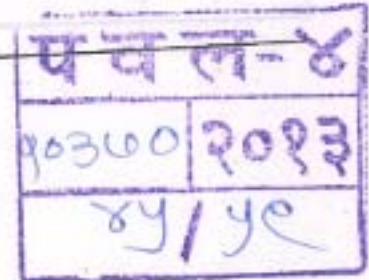 प व ल-४
१०३७० २०१३
४५/५९